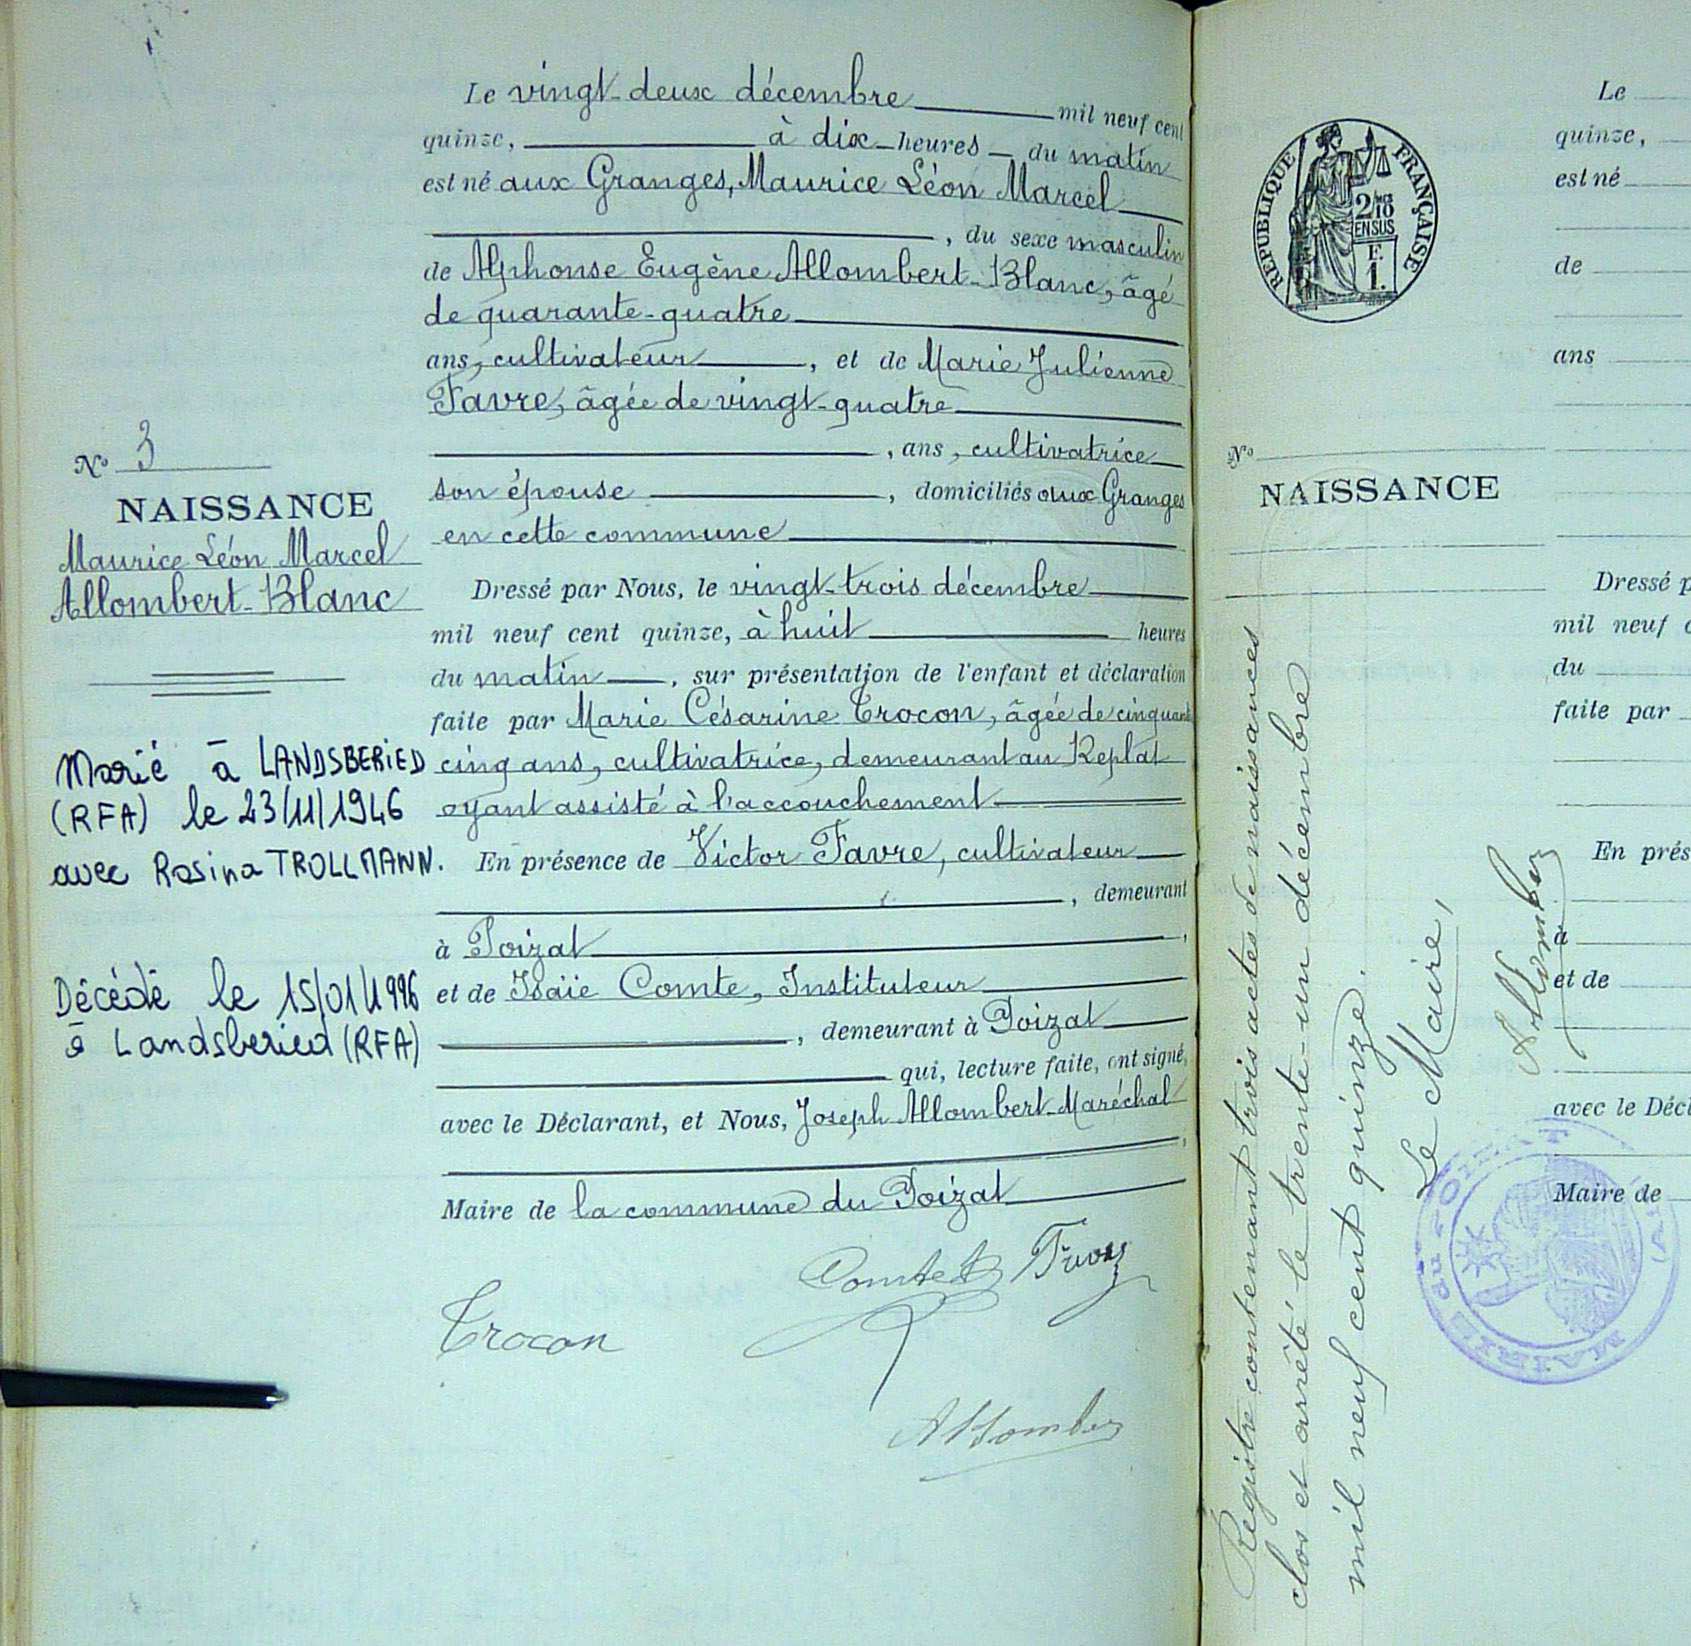 Le vingt-deux décembre mil neuf cent
quinze, à dix heures du matin
est né aux Granges, Maurice Léon Marcel
, du sexe masculin
de Alphonse Eugène Allombert-Blanc, âgé
de quarante-quatre
ans, cultivateur, et de Marie Julienne
Favre, âgée de vingt-quatre
, ans, cultivatrice
son épouse, domiciliés aux Granges
en cette commune
Dressé par Nous, le vingt-trois décembre
mil neuf cent quinze, à huit heures
du matin, sur présentation de l'enfant et déclaration
faite par Marie Césarine Crocon, âgée de cinquante
cinq ans, cultivatrice, demeurant au Replat
ayant assisté à l'accouchement
En présence de Victor Favre, cultivateur
, demeurant
à Poizat,
et de Isaïe Comte, Instituteur
, demeurant à Poizat
qui, lecture faite, ont signé,
avec le Déclarant, et Nous, Joseph Allombert-Maréchal
,
Maire de la commune du Poizat
Comte Favre
Crocon
Allombert
N° 3
NAISSANCE
Maurice Léon Marcel
Allombert-Blanc
Marié à LANDSBERIED
(RFA) le 23/11/1946
avec Rosina TROLLMANN.
Décédé le 15/01/1996
à Landsberied (RFA)
RÉPUBLIQUE FRANÇAISE
2/10
EN SUS
E.
1.
N°
NAISSANCE
Registre contenant trois actes de naissances
clos et arrêté le trente-un décembre
mil neuf cent quinze.
Le Maire,
Allombert
MAIRIE du POIZAT (AIN)
Le
quinze,
est né
de
ans
Dressé p
mil neuf c
du
faite par
En prés
à
et de
avec le Décl
Maire de